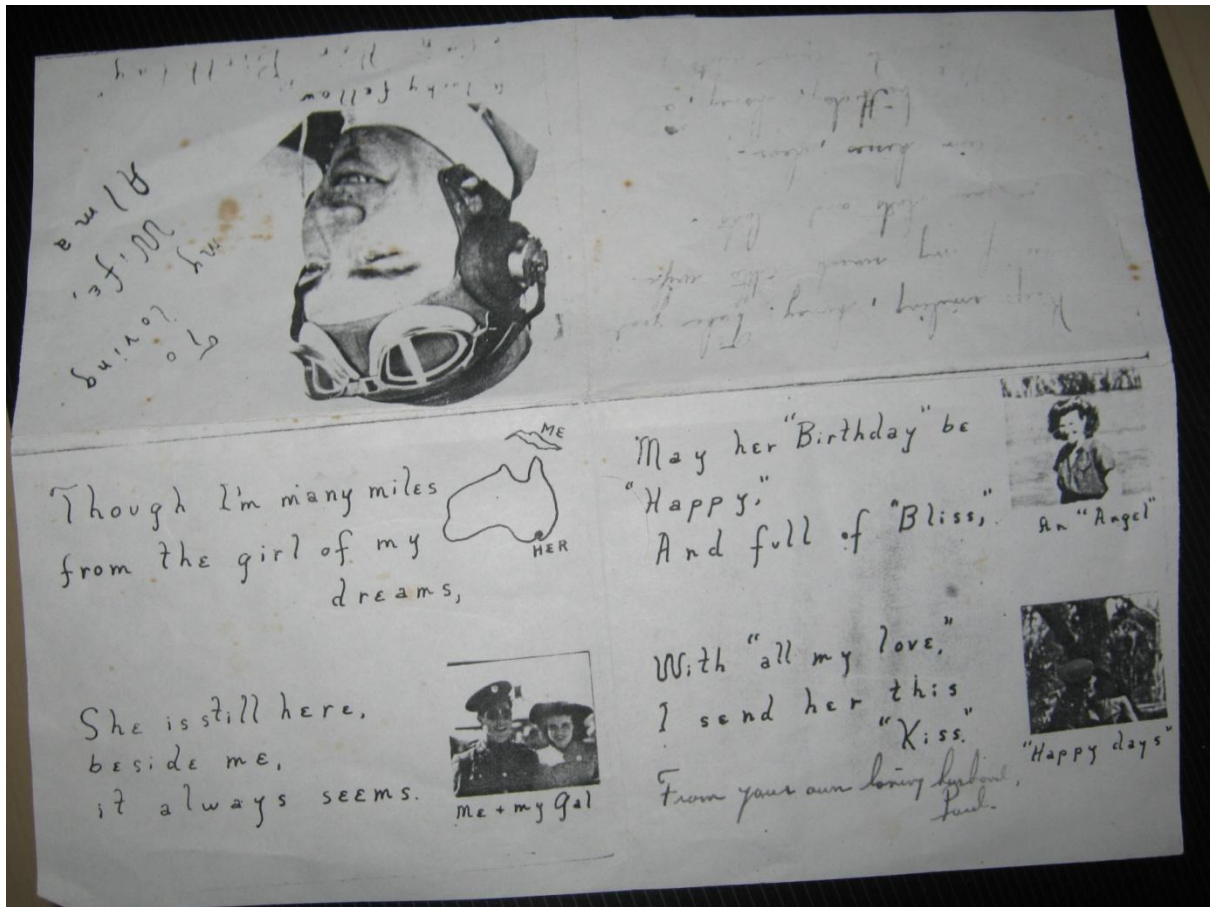 To my
loving
Wife,
Alma
a lucky fellow,
Birthday
Keep smiling, honey. Take good
my sweet little wife
and
Though I'm many miles
from the girl of my
dreams,
ME
HER
She is still here,
beside me,
it always seems.
Me + my Gal
May her "Birthday" be
"Happy,"
And full of "Bliss,"
An "Angel"
With "all my love,"
I send her this
"Kiss."
"Happy days"
From your own loving husband,
Paul.